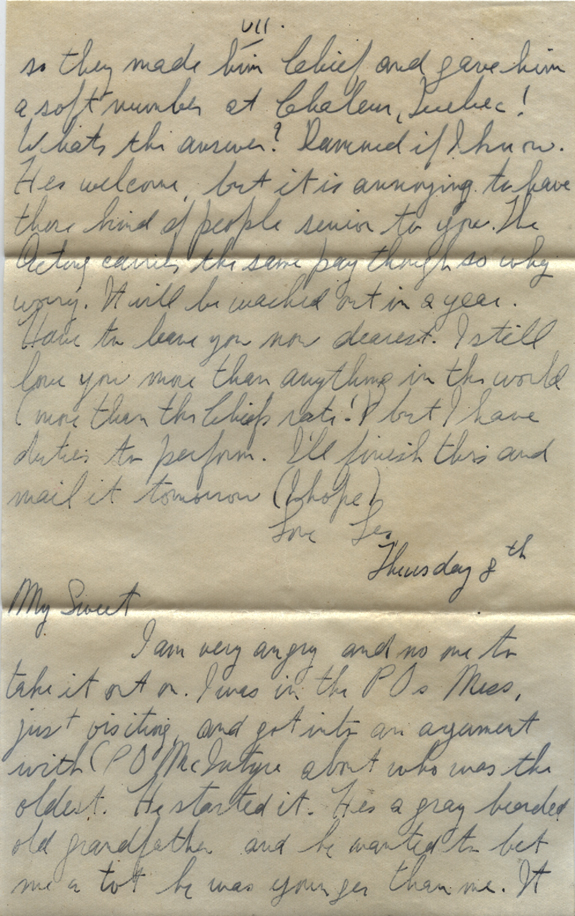 VII.
so they made him Chief and gave him
a soft number at Chaleur, Quebec!
Whats the answer? Damned if I know.
Hes welcome, but it is annoying to have
those kind of people senior to you. The
Acting carries the same pay though so why
worry. It will be washed out in a year.
Have to leave you now dearest. I still
love you more than anything in the world
(more than the Chiefs rate!) but I have
duties to perform. I'll finish this and
mail it tomorrow (I hope)
Love Les
Thursday 8th
My Sweet
I am very angry and no one to
take it out on. I was in the P Os Mess,
just visiting, and got into an argument
with C P O McIntyre about who was the
oldest. He started it. Hes a gray bearded
old grandfather and he wanted to bet
me a tot he was younger than me. It